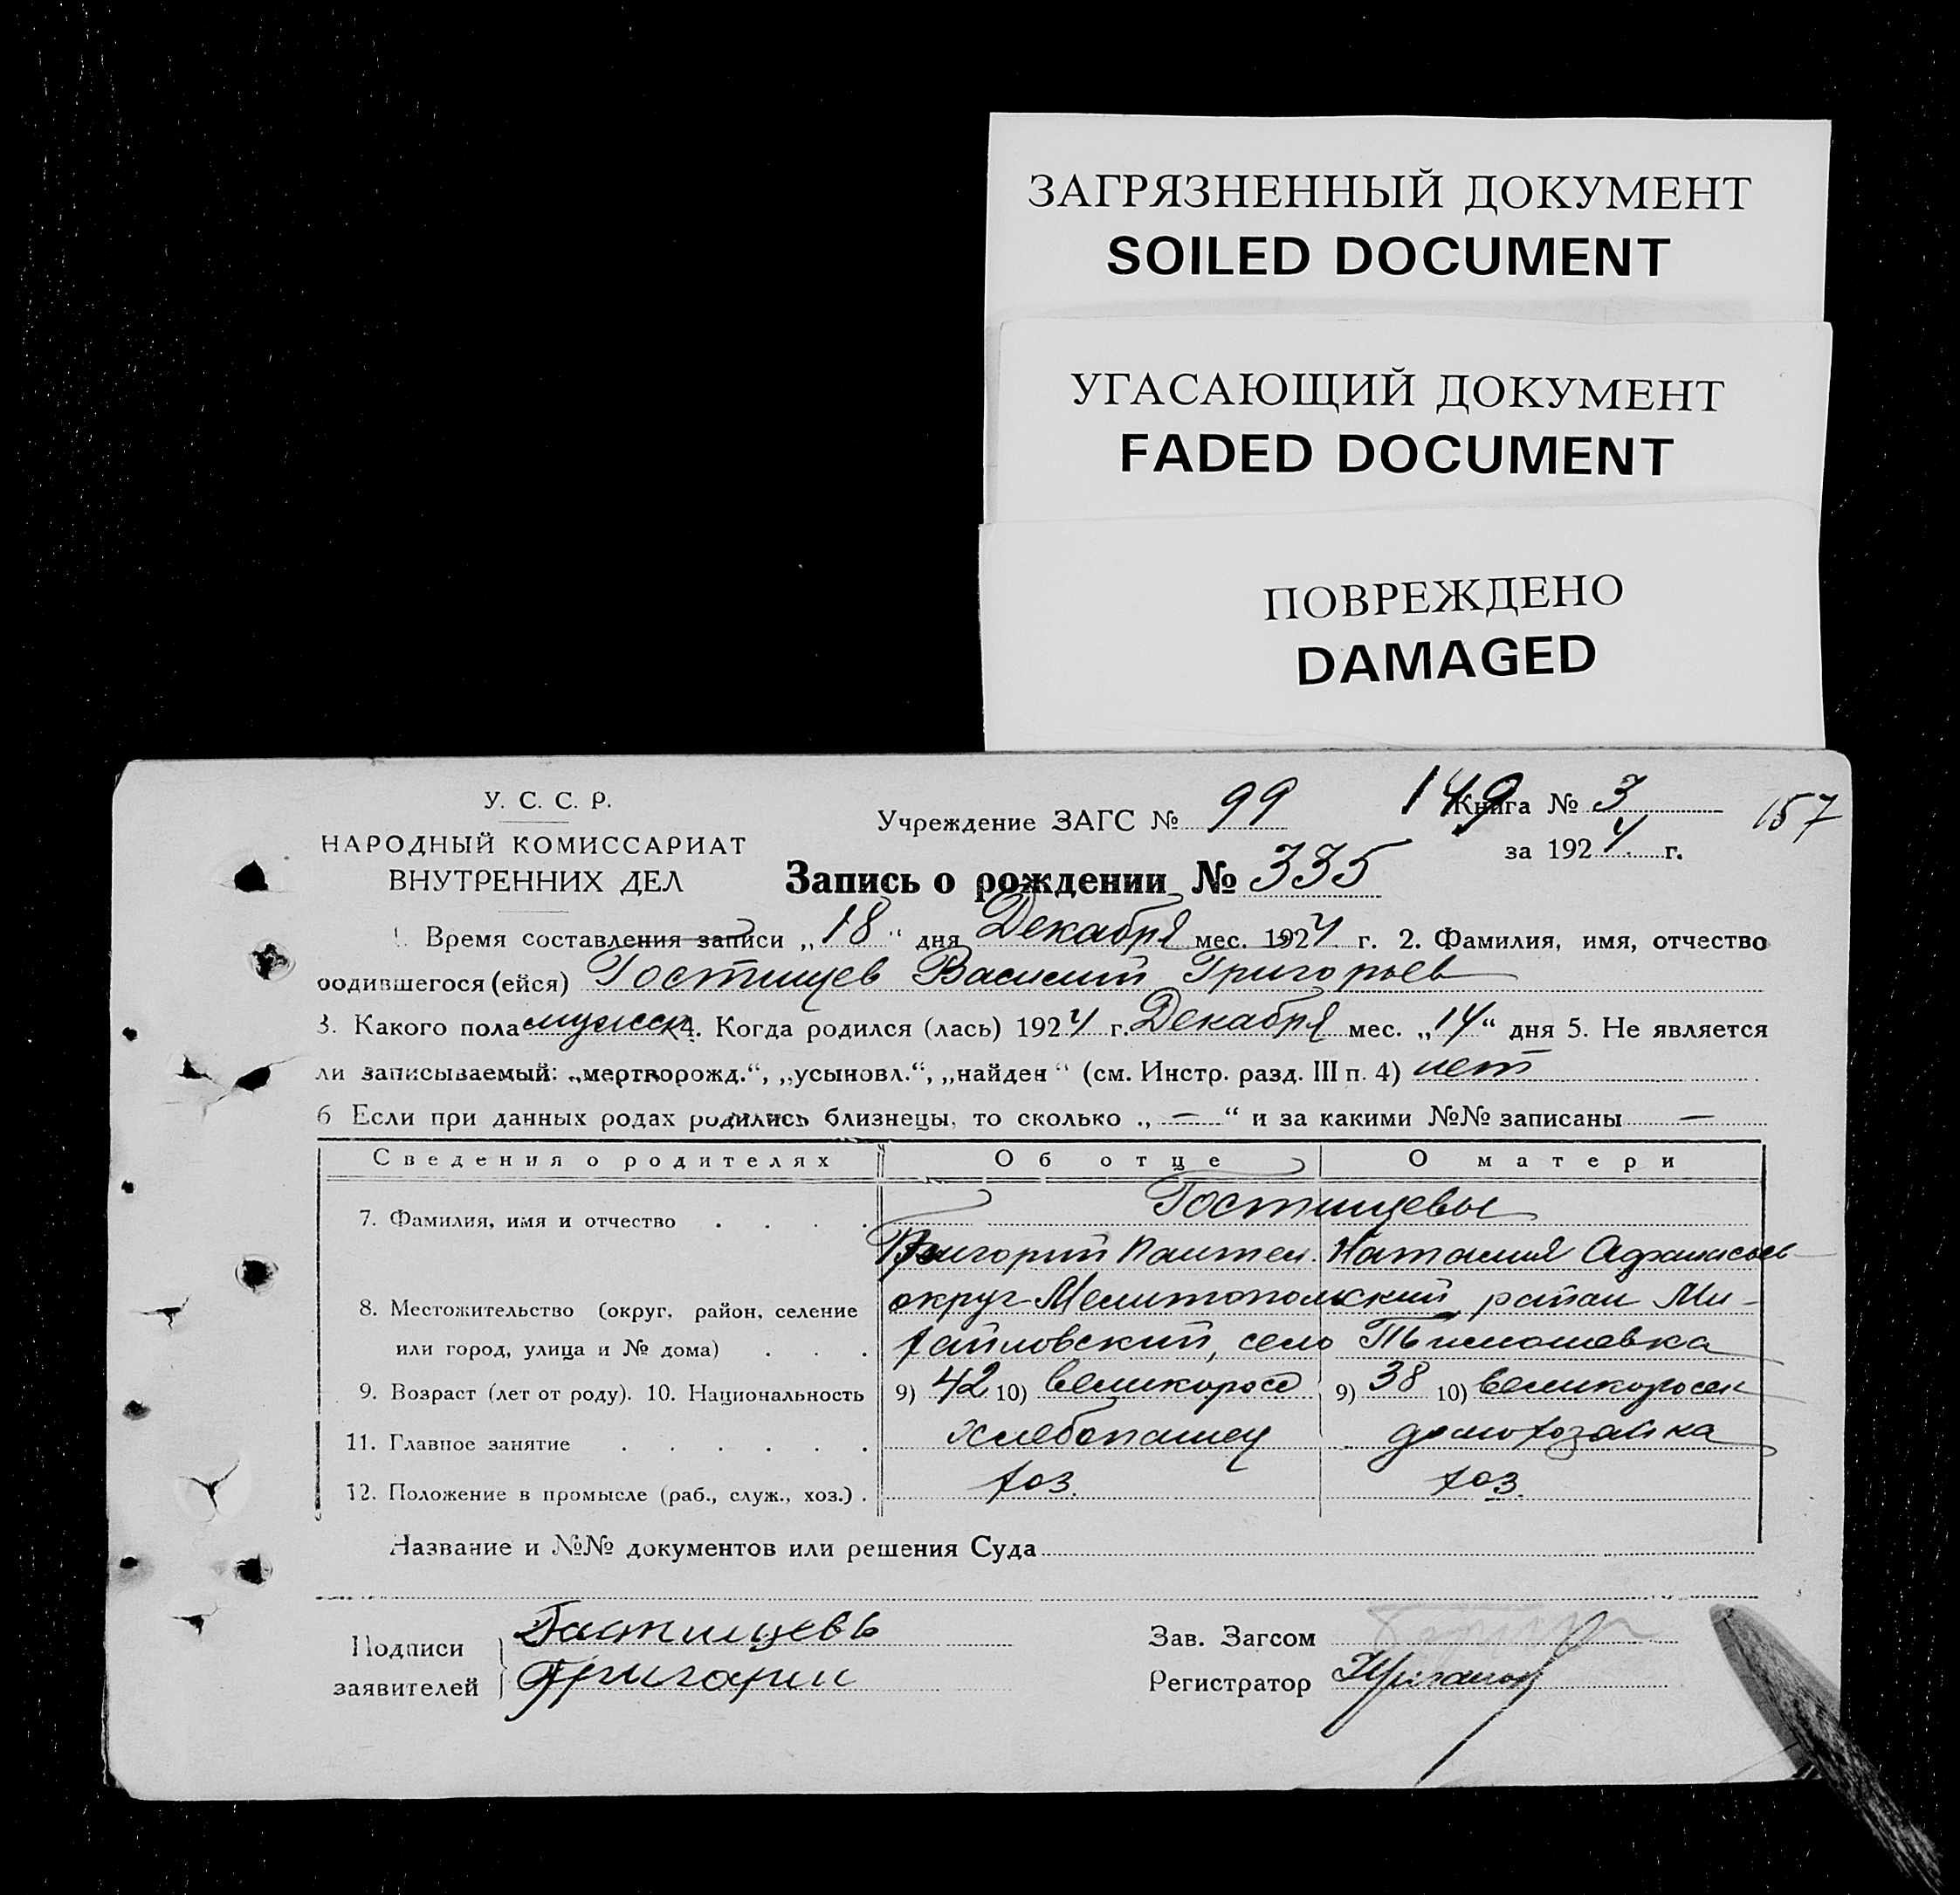 ЗАГРЯЗНЕННЫЙ ДОКУМЕНТ
SOILED DOCUMENT
УГАСАЮЩИЙ ДОКУМЕНТ
FADED DOCUMENT
ПОВРЕЖДЕНО
DAMAGED
У. С. С. Р.
НАРОДНЫЙ КОМИССАРИАТ
ВНУТРЕННИХ ДЕЛ
Учреждение ЗАГС № 99
149
Книга № 3
157
за 1924 г.
Запись о рождении № 335
1. Время составления записи „18“ дня Декабря мес. 1924 г. 2. Фамилия, имя, отчество
родившегося (ейся) Гостищев Василий Григорьев
3. Какого пола мужск 4. Когда родился (лась) 1924 г. Декабря мес. „14“ дня 5. Не является
ли записываемый: „мертворожд.“, „усыновл.“, „найден“ (см. Инстр. разд. III п. 4) нет
6 Если при данных родах родились близнецы, то сколько „ — “ и за какими №№ записаны —
Сведения о родителях Об отце О матери
7. Фамилия, имя и отчество . . . . Гостищевы
Григорий Наталия Афанасьев
8. Местожительство (округ, район, селение округ Мелитопольский, район Ми-
или город, улица и № дома) . . . хайловский, село Тимошевка
9. Возраст (лет от роду). 10. Национальность 9) 42 10) великоросс 9) 38 10) великоросск
11. Главное занятие . . . . . . хлебопашец домохозайка
12. Положение в промысле (раб., служ., хоз.) . хоз. хоз.
Название и №№ документов или решения Суда
Подписи заявителей
Гастищевъ
Григории
Зав. Загсом
Регистратор